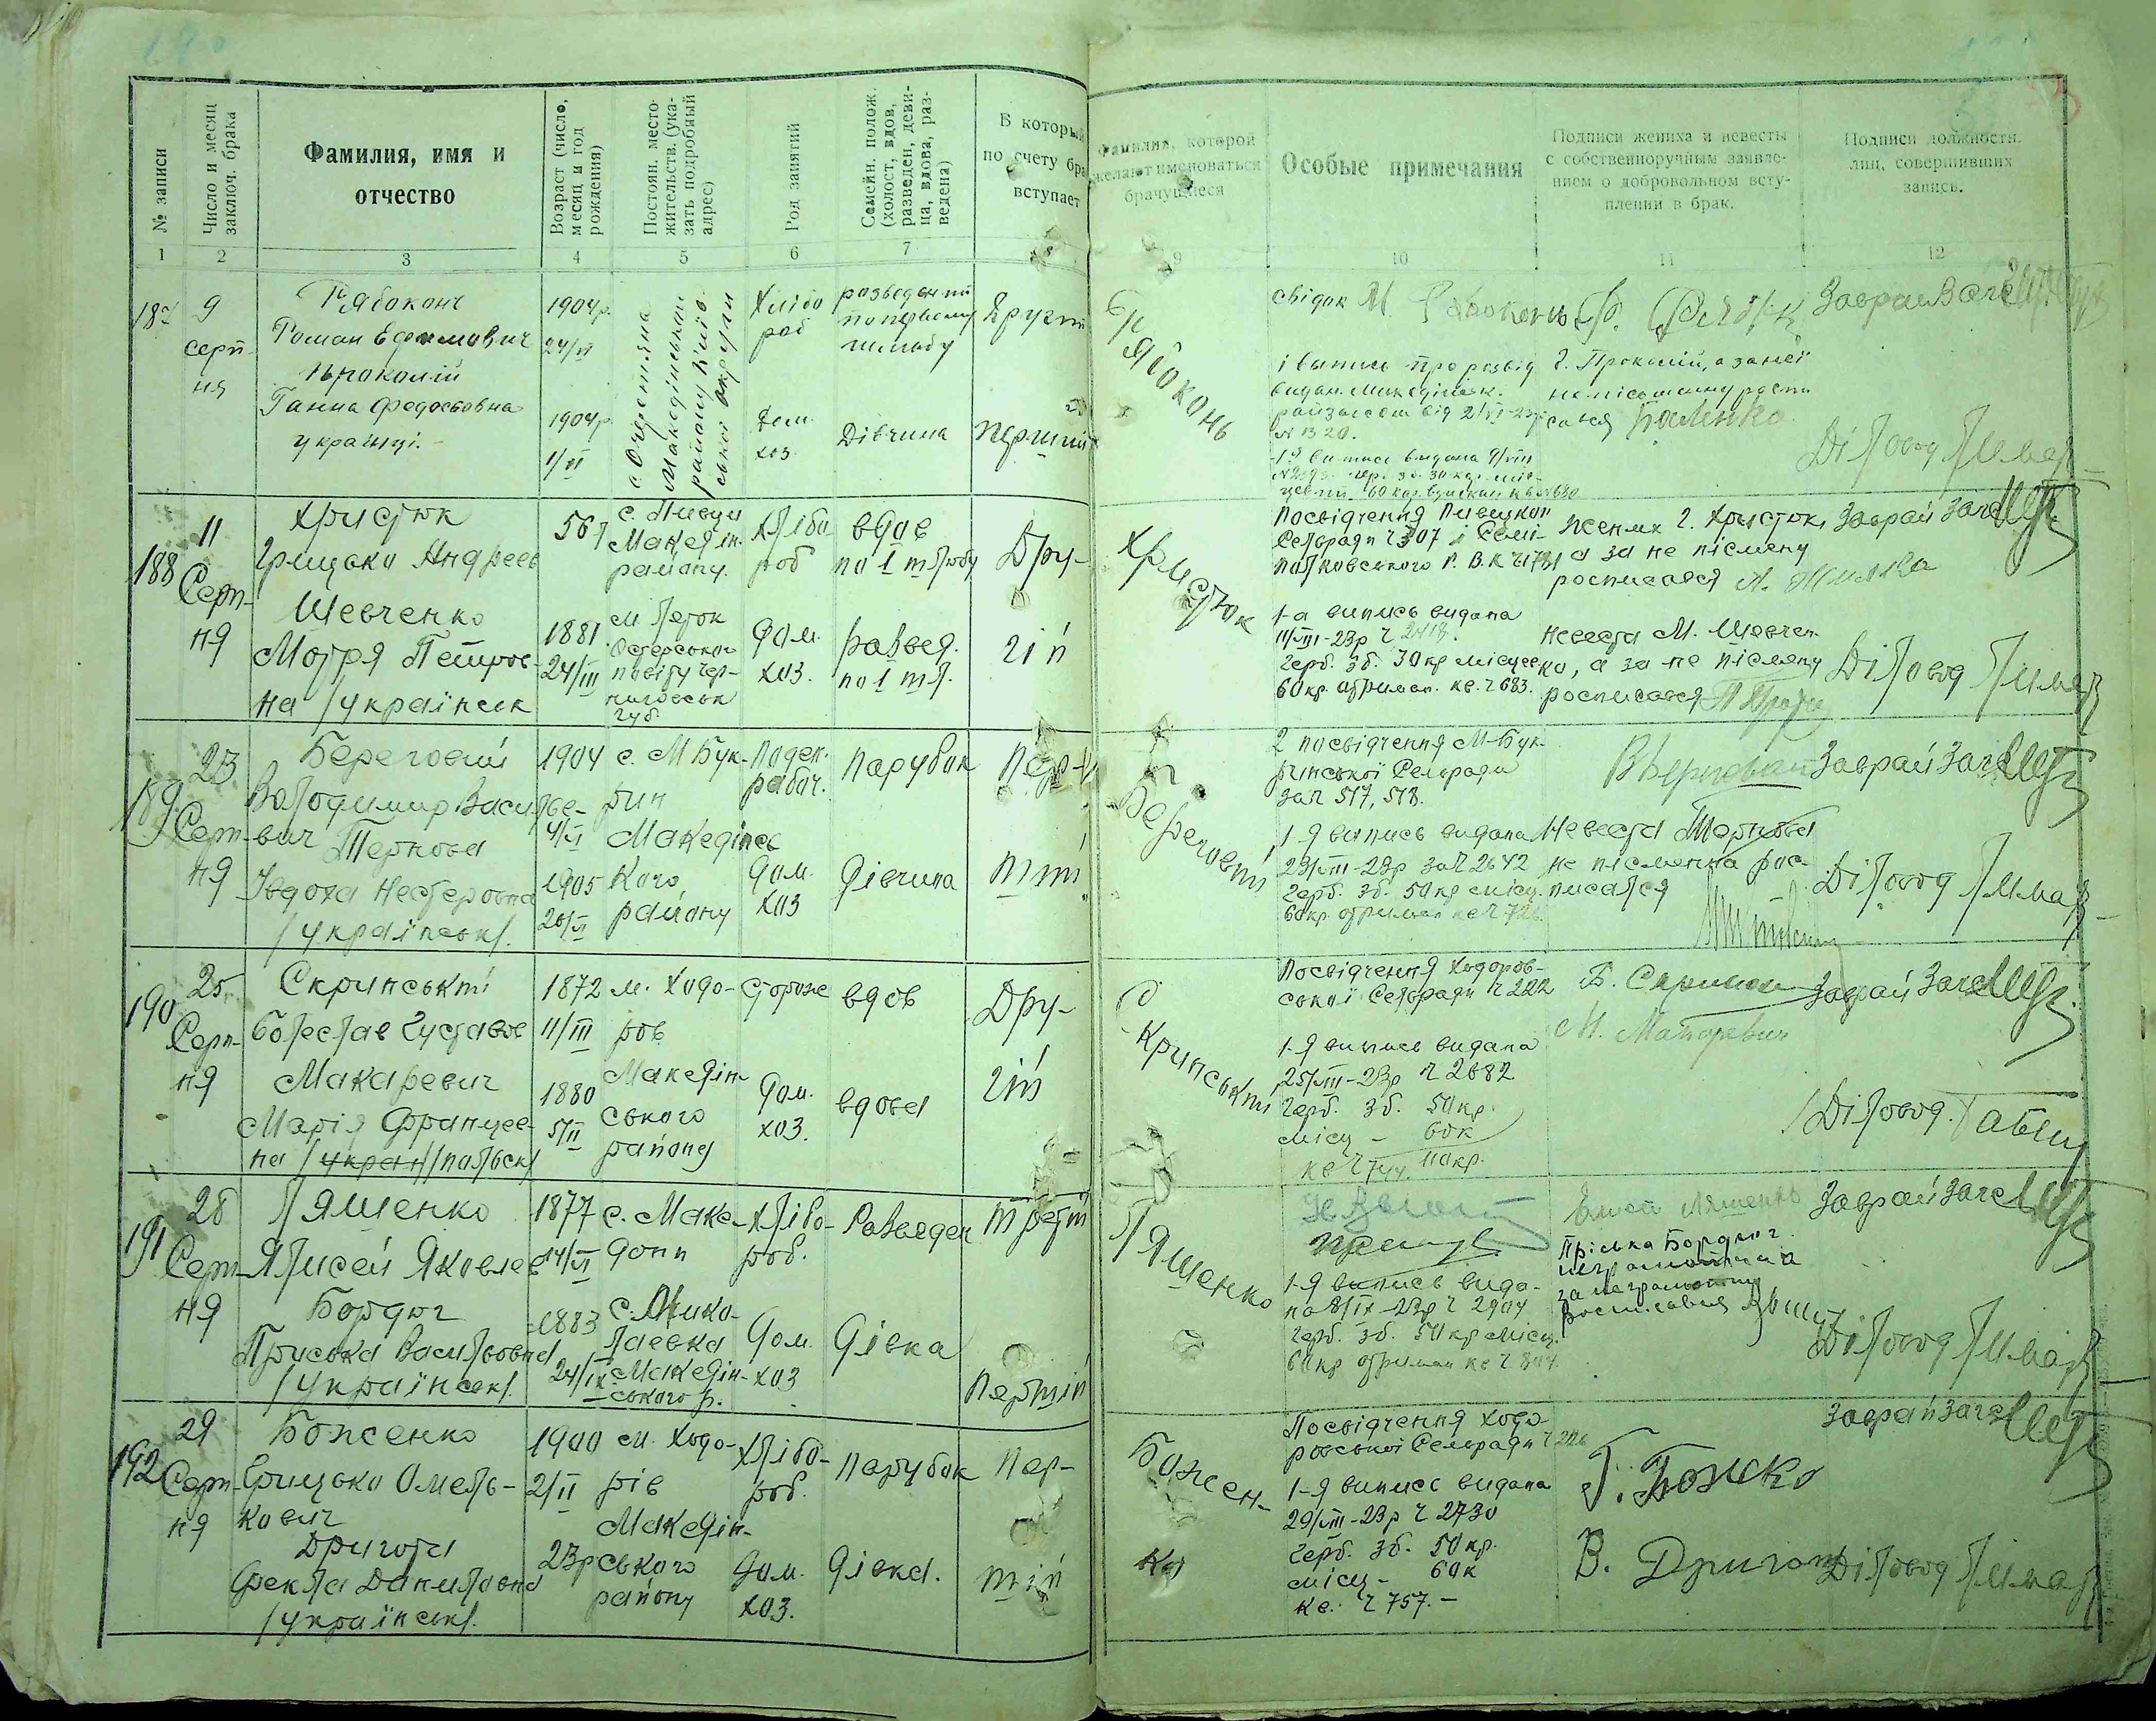 № записи
Число и месяц
заключ. брака
Фамилия, имя и
отчество
Возраст (число,
месяц и год
рождения)
Постоян. место-
жительств. (ука-
зать подробный
адрес)
Род занятий
Семейн. полож.
(холост, вдов,
разведен, деви-
ца, вдова, раз-
ведена)
В который
по счету бра
вступает
Фамилия, которой
желают именоваться
брачущиеся
Особые примечания
Подписи жениха и невесты
с собственноручным заявле-
нием о добровольном всту-
плении в брак.
Подписи должностн.
лиц, совершивших
запись.
1 2 3 4 5 6 7 8 9 10 11 12
187
9
серп-
ня
Рябоконь
Роман Ефимович
Прокопій
Ганна Федосьовна
українці.-
1904р.
24/VI
1904р.
1/VI
Македінськ
району Київ-
ської округи
Хлібо
роб
Дом.
хоз.
разведений
по первому
шлюбу
Дівчина
Другий
перший
Рябоконь
свідок М. Рябоконь
і випись про розвід
видан. Македінськ.
райзагсом від 2/VI-23р
№ 1320.
Г. Прокопій, а за неї
неписьменну роспи
сався
Заврайзагс
Діловод
188
11
Серп-
ня
Христюк
Грицько Андреев
Шевченко
Мотря Петров-
на /українськ
567
1881
24/III
Македін.
району.
Остерського
повіту Чер-
ниговськ
губ.
хлібо-
роб
дом.
хоз.
вдов
по I шлюбу
развед.
по I шл.
Дру-
гій
Христюк
Посвідчення
Сельради ч 307 і
1-а випись видана
11/VIII-23р ч 2418.
герб. зб. 30кр місцев
60кр. отриман. кв. ч 683.
жених Г. Христюк,
а за не пісмену
росписался
невеста М. Шевчен
ко, а за не пісмену
росписался
Заврай загс
Діловод
189
23
Серп-
ня
Береговий
Володимир Василье-
вич
Тернова
Івдоха Нестеровна
/українськ/.
1904
4/VI
1905
20/VI
с. М Бук-
рин
Македінсь
кого
району
Поден.
рабоч.
дом.
хоз
Парубок
дівчина
Пер-
ший
Береговий
2 посвідчення М-Бук-
ринської Сельради
за ч 517, 518.
1-я випись видана
23/VIII-23р за ч 2642
герб. зб. 50кр місц.
60кр. отриман кв ч 726.
Невеста Тернова
не пісменна рос-
писался
Заврай загс
Діловод
190
25
Серп-
ня
Скринський
Болеслав Густавов
Макаревич
Марія Францев-
на /украй//польськ/
1872
11/III
1880
5/II
м. Ходо-
ров
Македін-
ського
району
Сторож
дом.
хоз.
вдов
вдова
Дру-
гій
Скринський
Посвідчення Ходоров-
ської Сельради ч 222
1-я випись видана
25/VIII-23р ч 2682
герб. зб. 50кр.
місц - 60к
кв ч 744. 110кр.
М. Макаревич
Заврай Загс
Діловод.
191
28
Серп-
ня
Ляшенко
Ялисей Яковлев
Бордюг
Приська Васильовна
/українськ/.
1877
14/VI
1883
24/IX
с. Маке-
дони
с. Мико-
лаевка
Македін-
ського р.
хлібо-
роб.
дом.
хоз
Разведен
дівка
третій
Первший
Ляшенко
1-я випись вида-
на 8/IX-23р ч 2904
герб. зб. 50кр місц.
60кр отриман кв ч 804.
Ляшенко
Пріська Бордюг
неграмотная
за неграмотную
росписався
Заврай загс
Діловод
192
29
Серп-
ня
Боженко
Грицько Омель-
кович
Дригота
Фекла Данилавна
/українськ/.
1900
2/II
23р
м. Ходо-
рів
Македін-
ського
району
Хлібо-
роб.
дом.
хоз.
Парубок
дівка.
Пер-
ший
Божен-
ко
Посвідчення Ходо-
ровської Сельради ч 226
1-я випись видана
29/VIII-23р ч 2730
герб. зб. 50кр.
місц - 60к
кв. ч 757.-
Г. Божко
В. Дригота
Заврай загс
Діловод